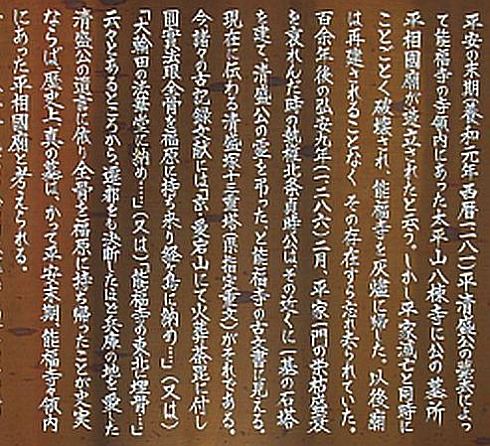 平安の末期(養和元年・西暦一一八一)平清盛公の薨去によっ
て能福寺の寺領内にあった太平山八棟寺に公の墓所
平相國廟が建立されたと云う。しかし平家滅亡と同時に
ことごとく破壊され、能福寺も灰燼に帰した。以後廟
は再建されることなく その存在すら忘れ去られていた。
百余年後の弘安九年(一二八六)二月、平家一門の栄枯盛衰
を哀れんだ時の執権北条貞時公はその近くに一基の石塔
を建て、清盛公の霊を弔った と能福寺の古文書に見える。
現在に伝わる清盛塚十三重塔(県指定重文)がそれである。
今、諸々の古記録文献には「京・愛宕山にて火葬荼毘に付し
圓實法眼全骨を福原に持ち来り経ヶ島に納め…」(又は)
「大輪田の法華堂に納め…」(又は)「能福寺の東北に埋骨…」
云々とあるところから遷都をも決断したほど兵庫の地を愛した
清盛公の遺言に依り全骨を福原に持ち帰ったことが史実
ならば、歴史上真の墓は、かって平安末期、能福寺寺領内
にあった平相國廟と考えられる。